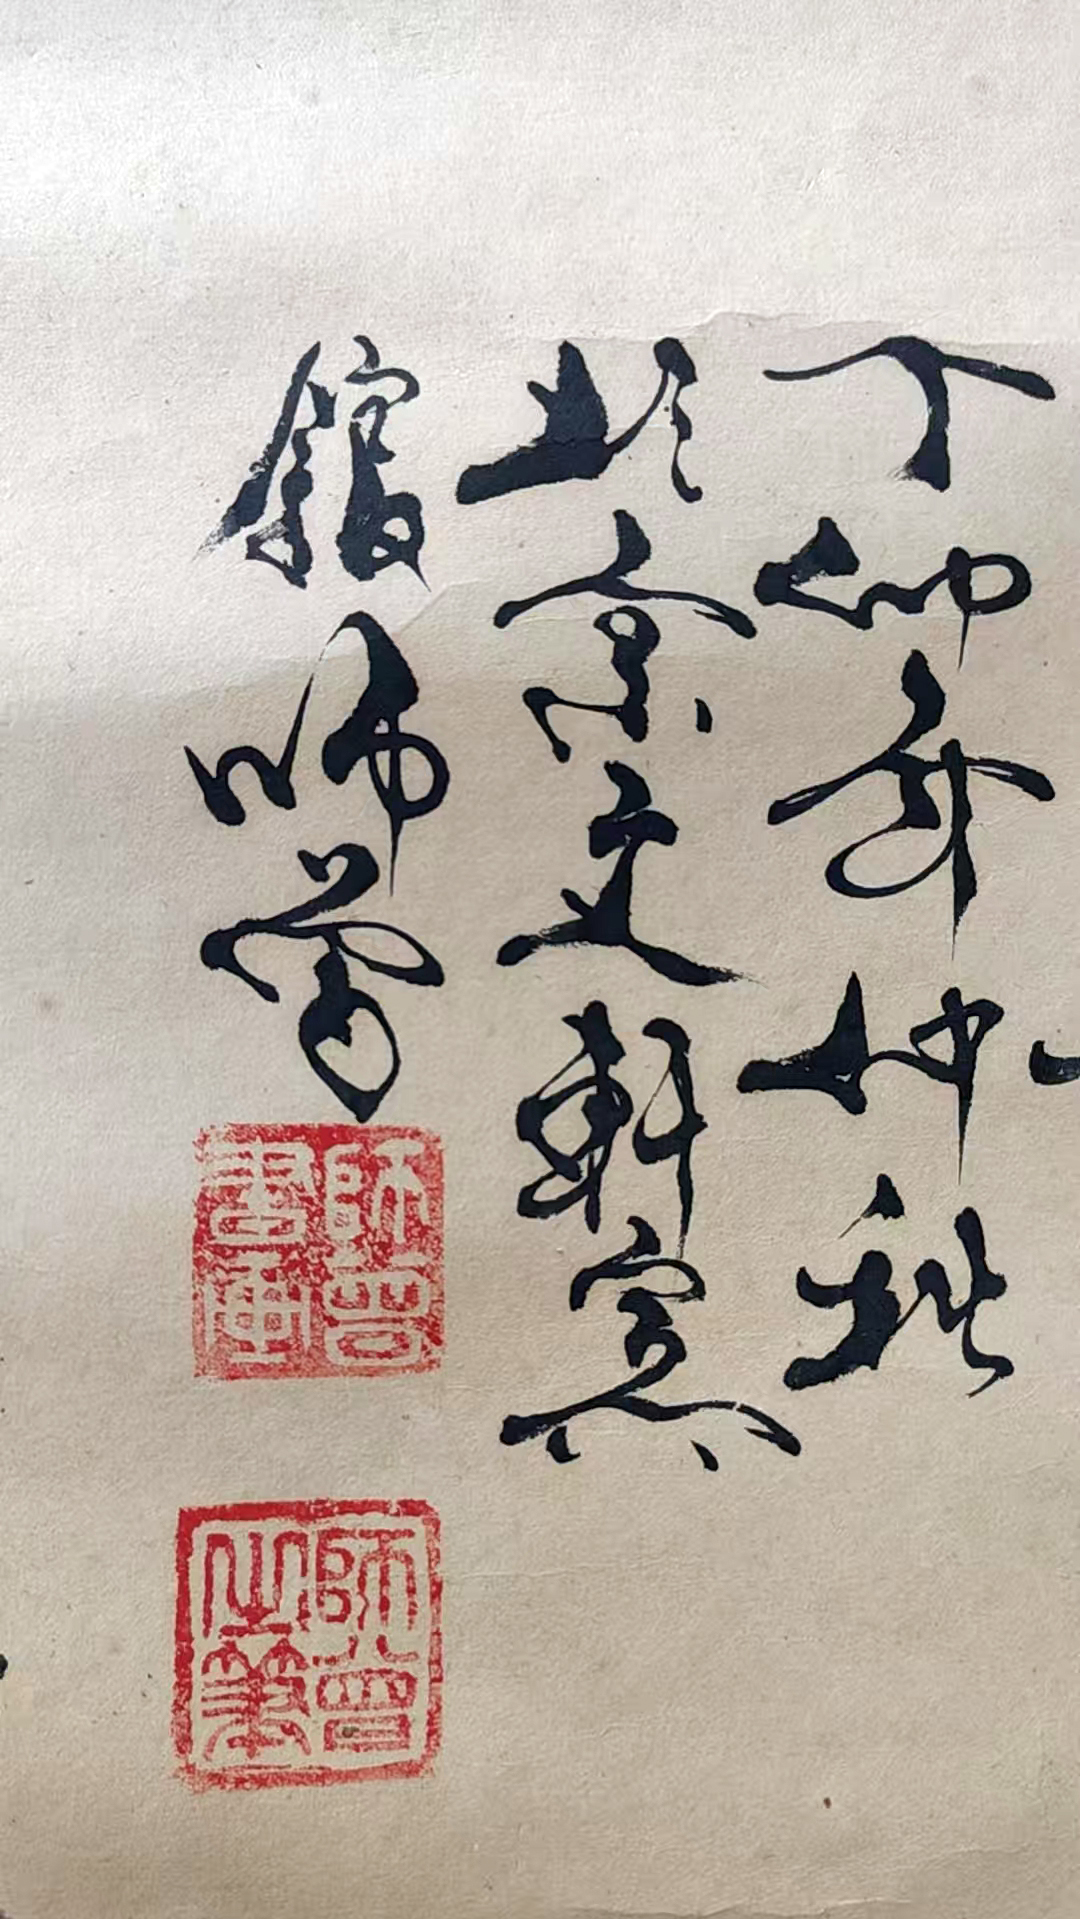 丁卯年仲秋
於京文軒賓
館師曾
師曾書畫
師曾之筆